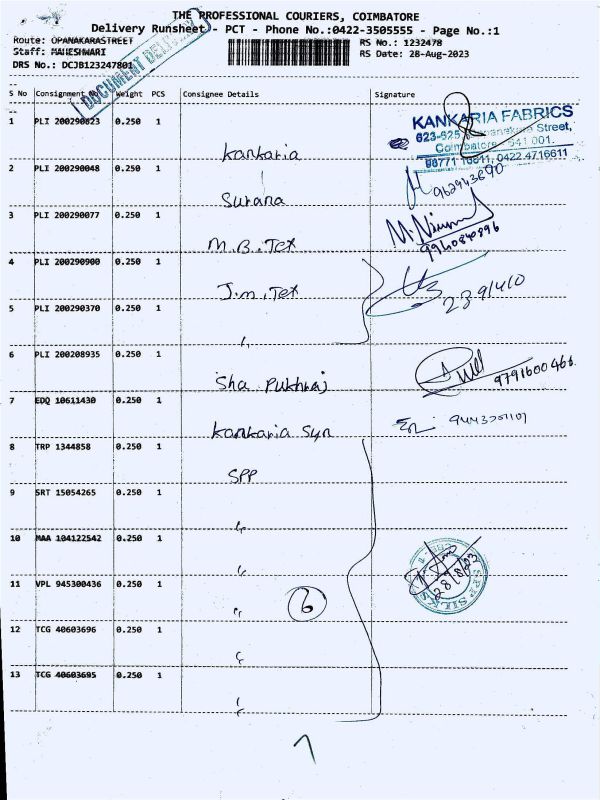 THE PROFESSIONAL COURIERS, COIMBATORE
Delivery Runsheet - PCT - Phone No.:0422-3505555 - Page No.:1
Route: OPANAKARASTREET
RS No.: 1232478
Staff: MAHESHWARI
RS Date: 28-Aug-2023
DRS No.: DCJB123247801
DOCUMENT DELIVERY
S No Consignment No Weight PCS Consignee Details Signature
1 PLI 200290823 0.250 1
KANKARIA FABRICS
623-625, Street,
Coimbatore - 641 001.
98771 16611, 0422 4716611
Kankaria
2 PLI 200290048 0.250 1
Surana
3 PLI 200290077 0.250 1
9940840896
M.B. Tex
4 PLI 200290900 0.250 1
J.M. Tex
5 PLI 200290370 0.250 1
〃
6 PLI 200208935 0.250 1
Sha Pukhraj 9791600466
7 EDQ 10611430 0.250 1
Kankaria Syn
8 TRP 1344858 0.250 1
SPP
9 SRT 15054265 0.250 1
〃
10 MAA 104122542 0.250 1
〃
SPP SILKS
28/8/23
11 VPL 945300436 0.250 1
〃 6
12 TCG 40603696 0.250 1
〃
13 TCG 40603695 0.250 1
〃